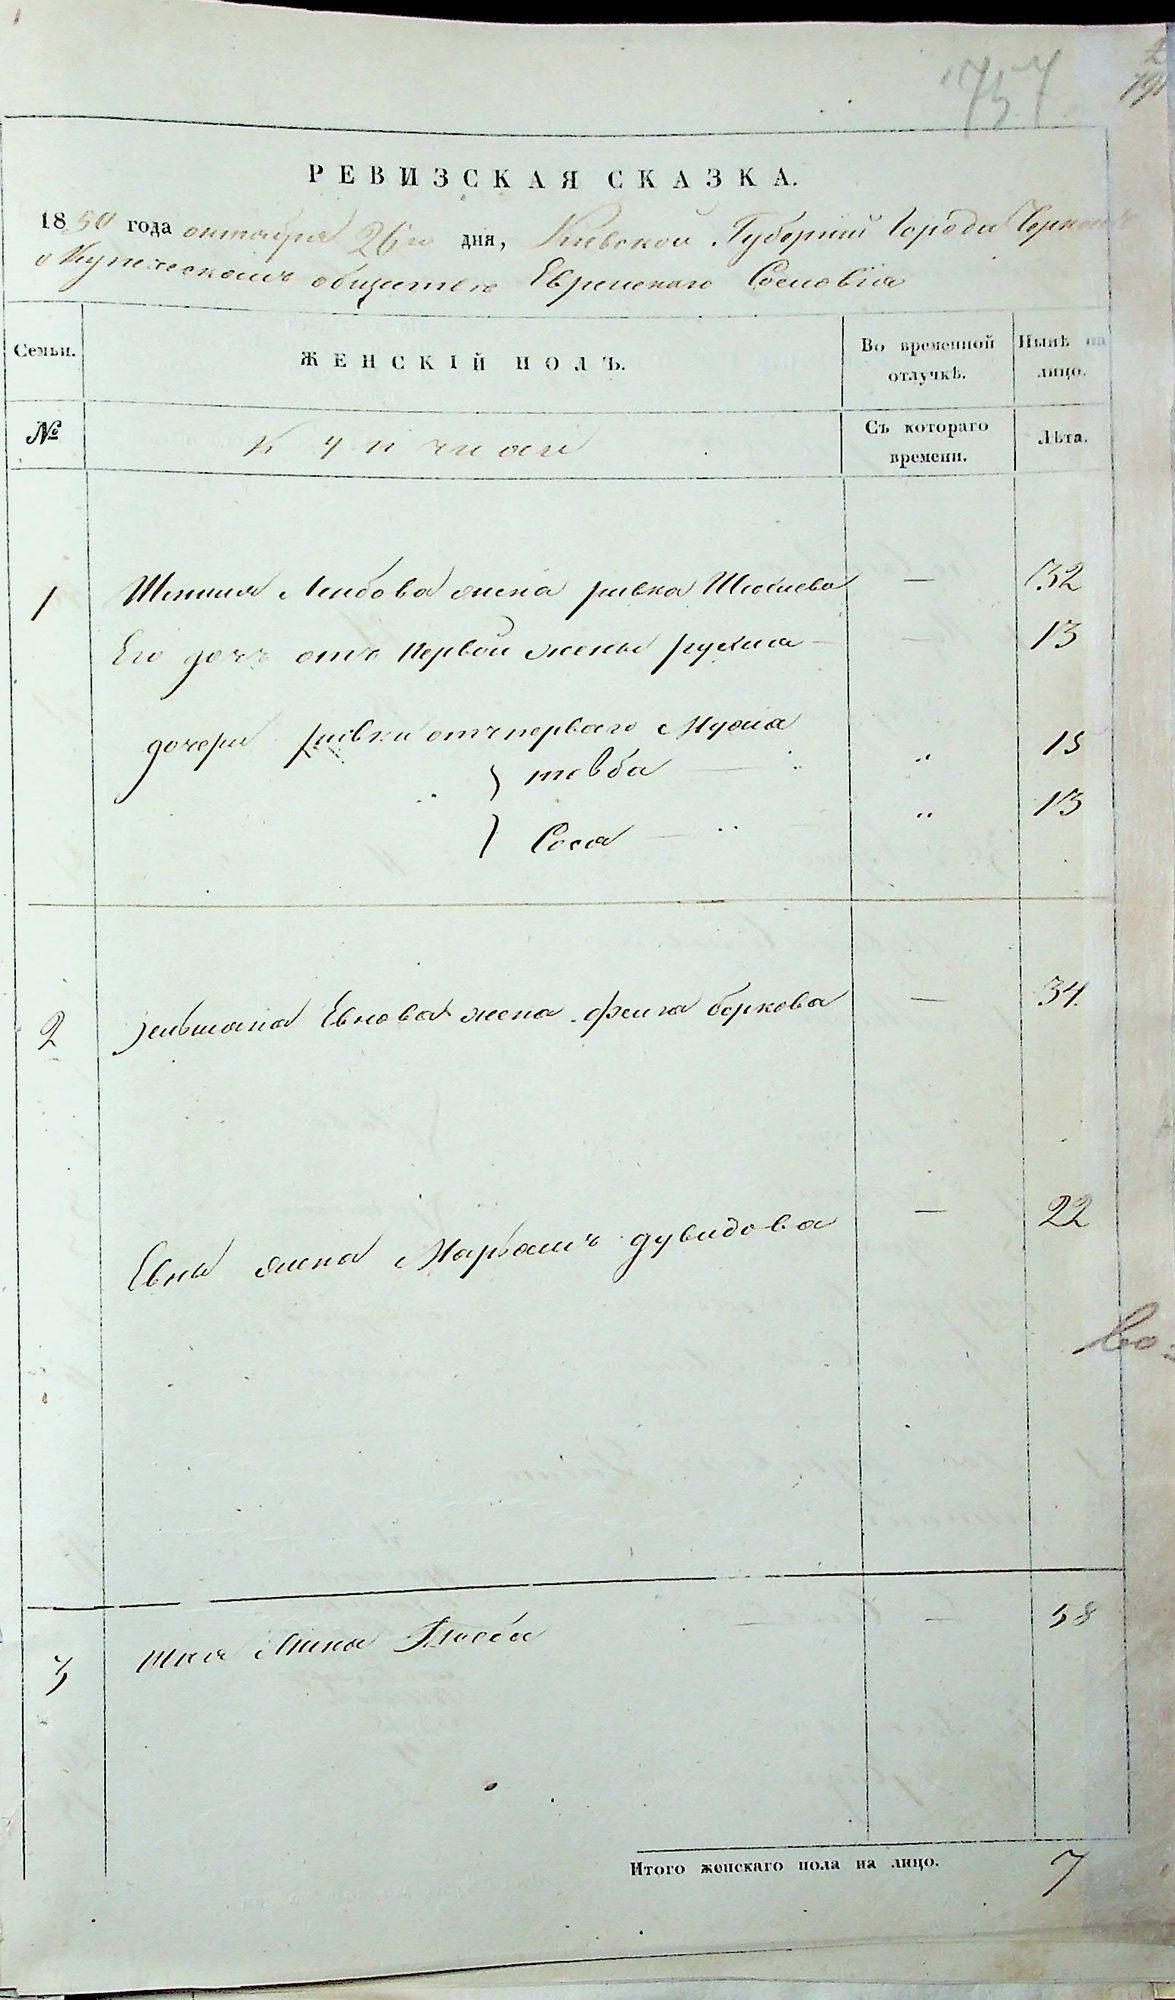 757
РЕВИЗСКАЯ СКАЗКА.
1850 года октября 26го дня, Киевской Губернии Города Черкасъ
о Купеческомъ обществе Еврейскаго Сословія
Семьи.
ЖЕНСКІЙ ПОЛЪ.
Во временной отлучкѣ.
Нынѣ на лицо.
№
Съ котораго времени.
Лѣта.
1 Лейбова жена ривка — 32
Его дочь отъ первой жены рухля — — 13
дочери ривки отъ первого Мужа
} товба — " " 15
" } Соса — " " 13
2 Евнова жена фейга беркова — 34.
Евны жена Марьямъ дувидова — 22
3 — — 58
Итого женскаго пола на лицо. 7